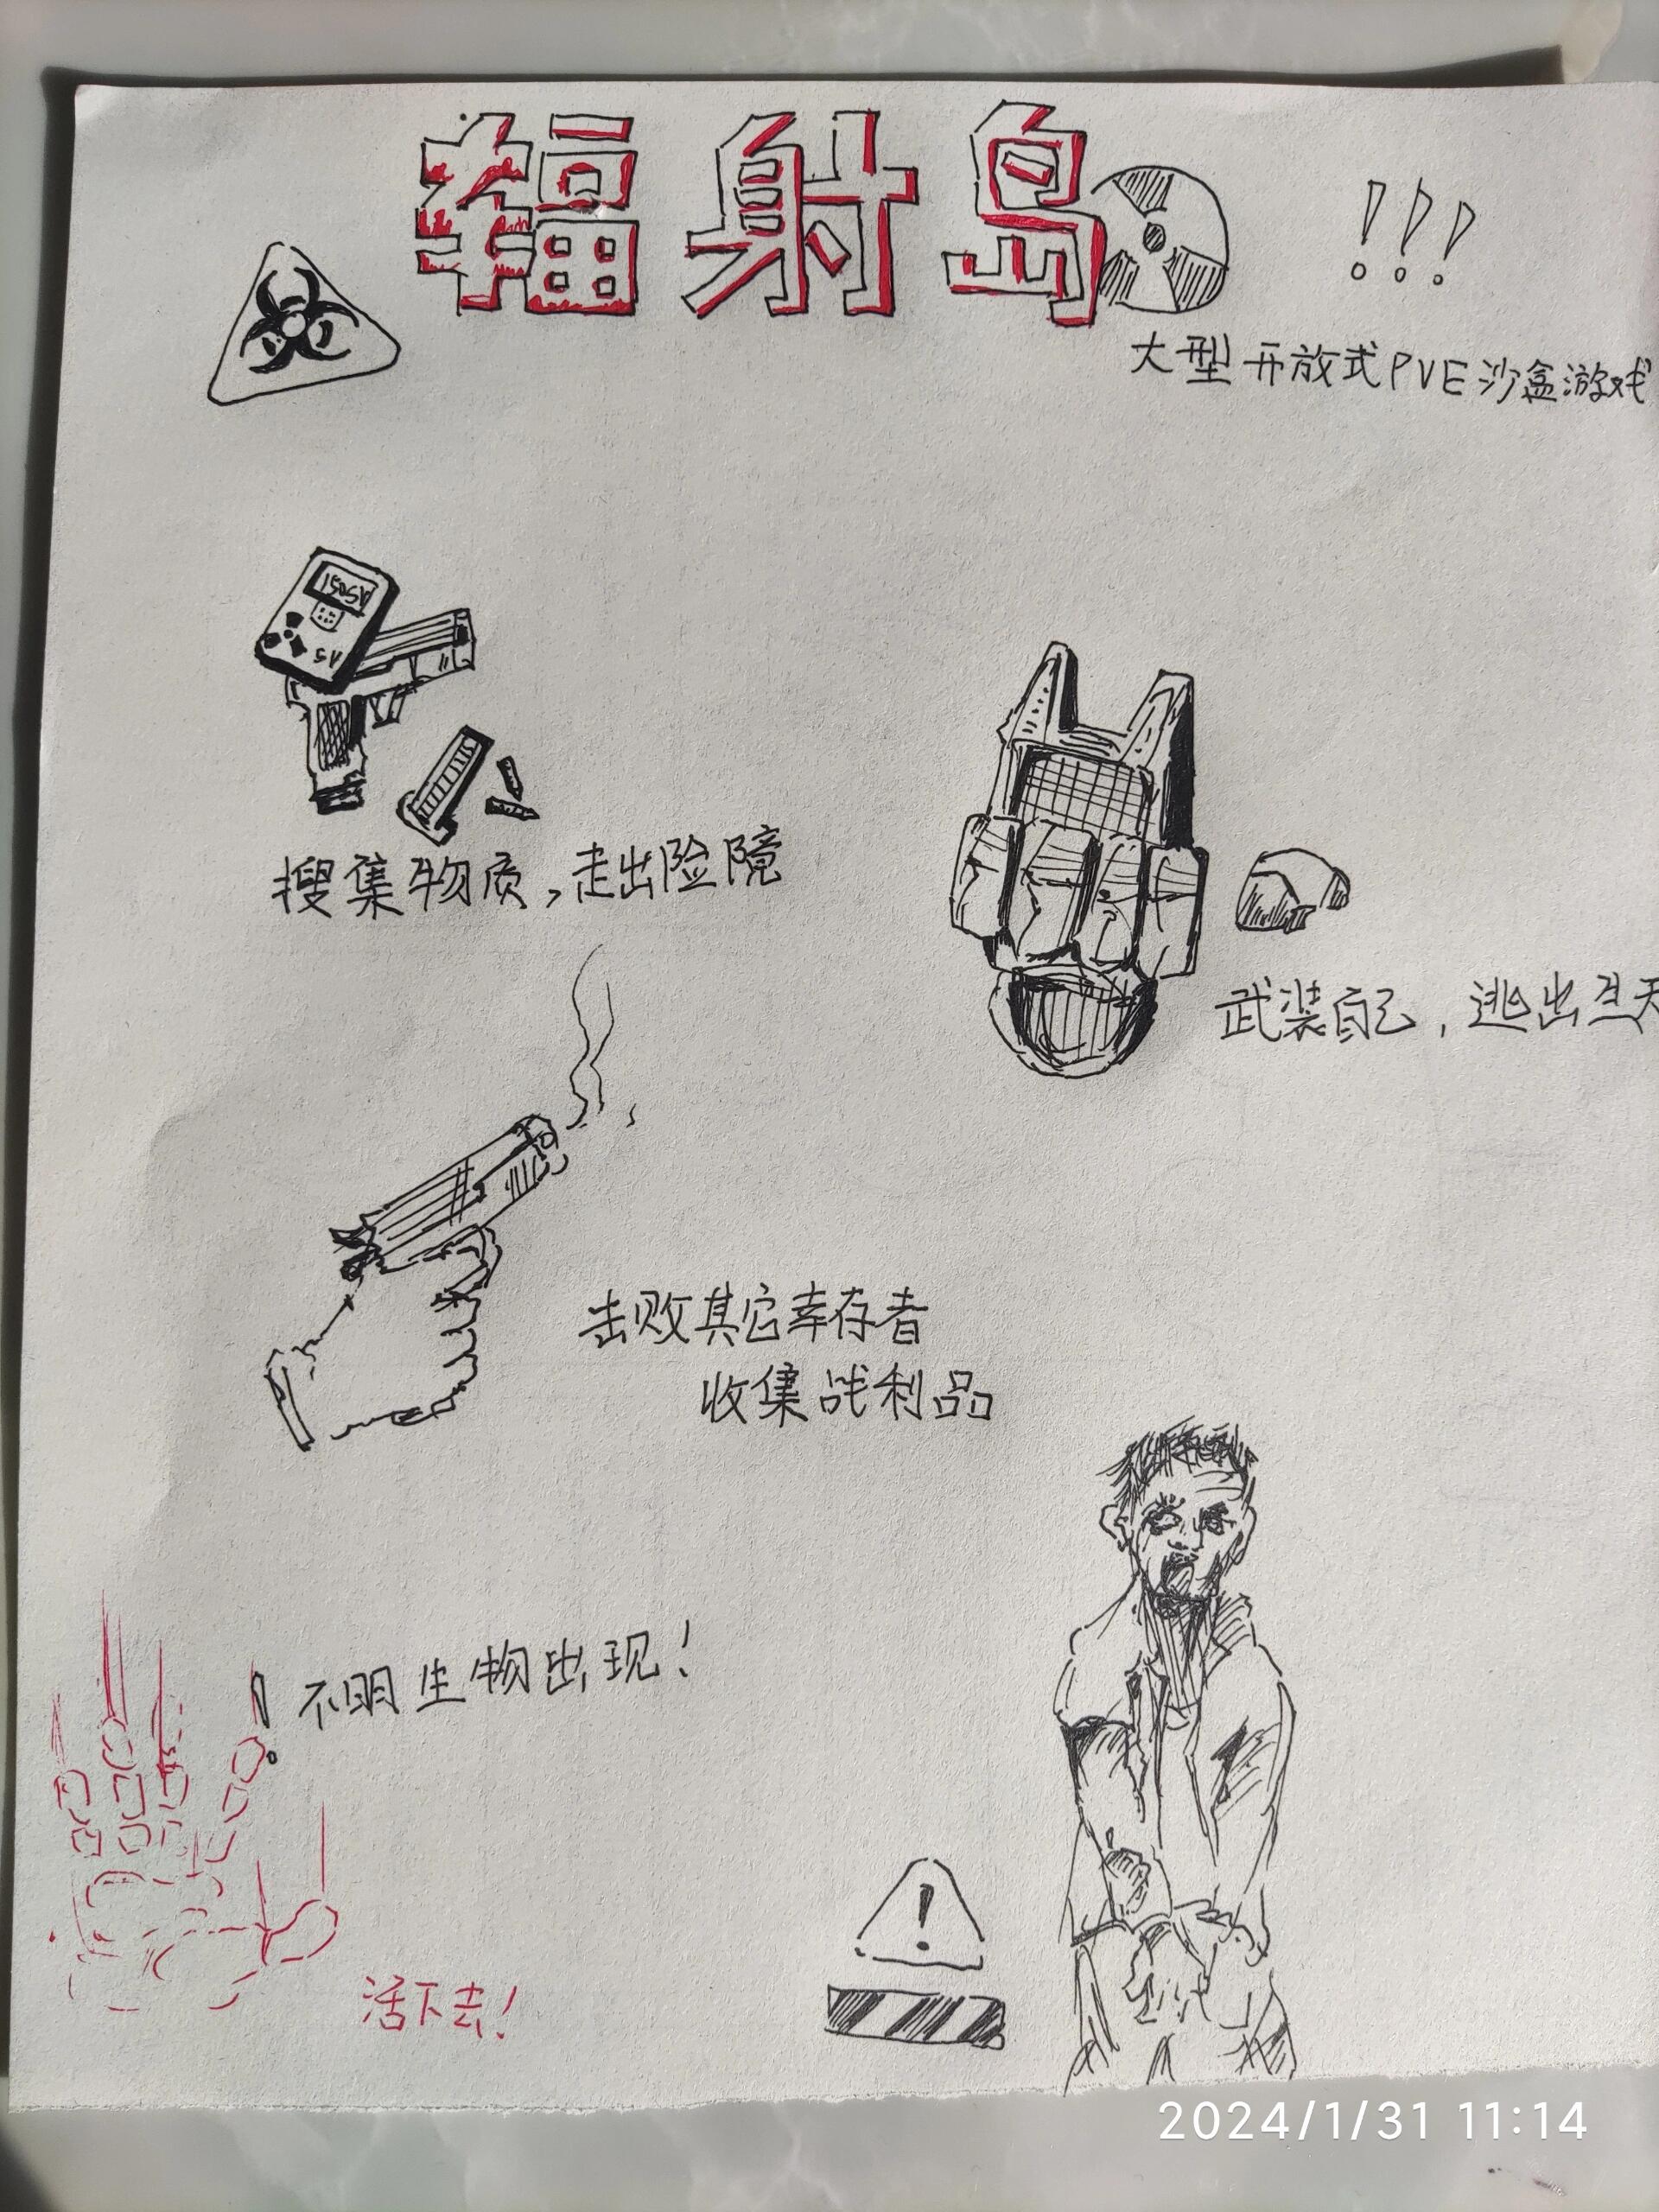 辐射岛
!!!
大型开放式PVE沙盒游戏
搜集物质,走出险境
武装自己,逃出生天
击败其它幸存者
收集战利品
!不明生物出现!
活下去!
!
2024/1/31 11:14